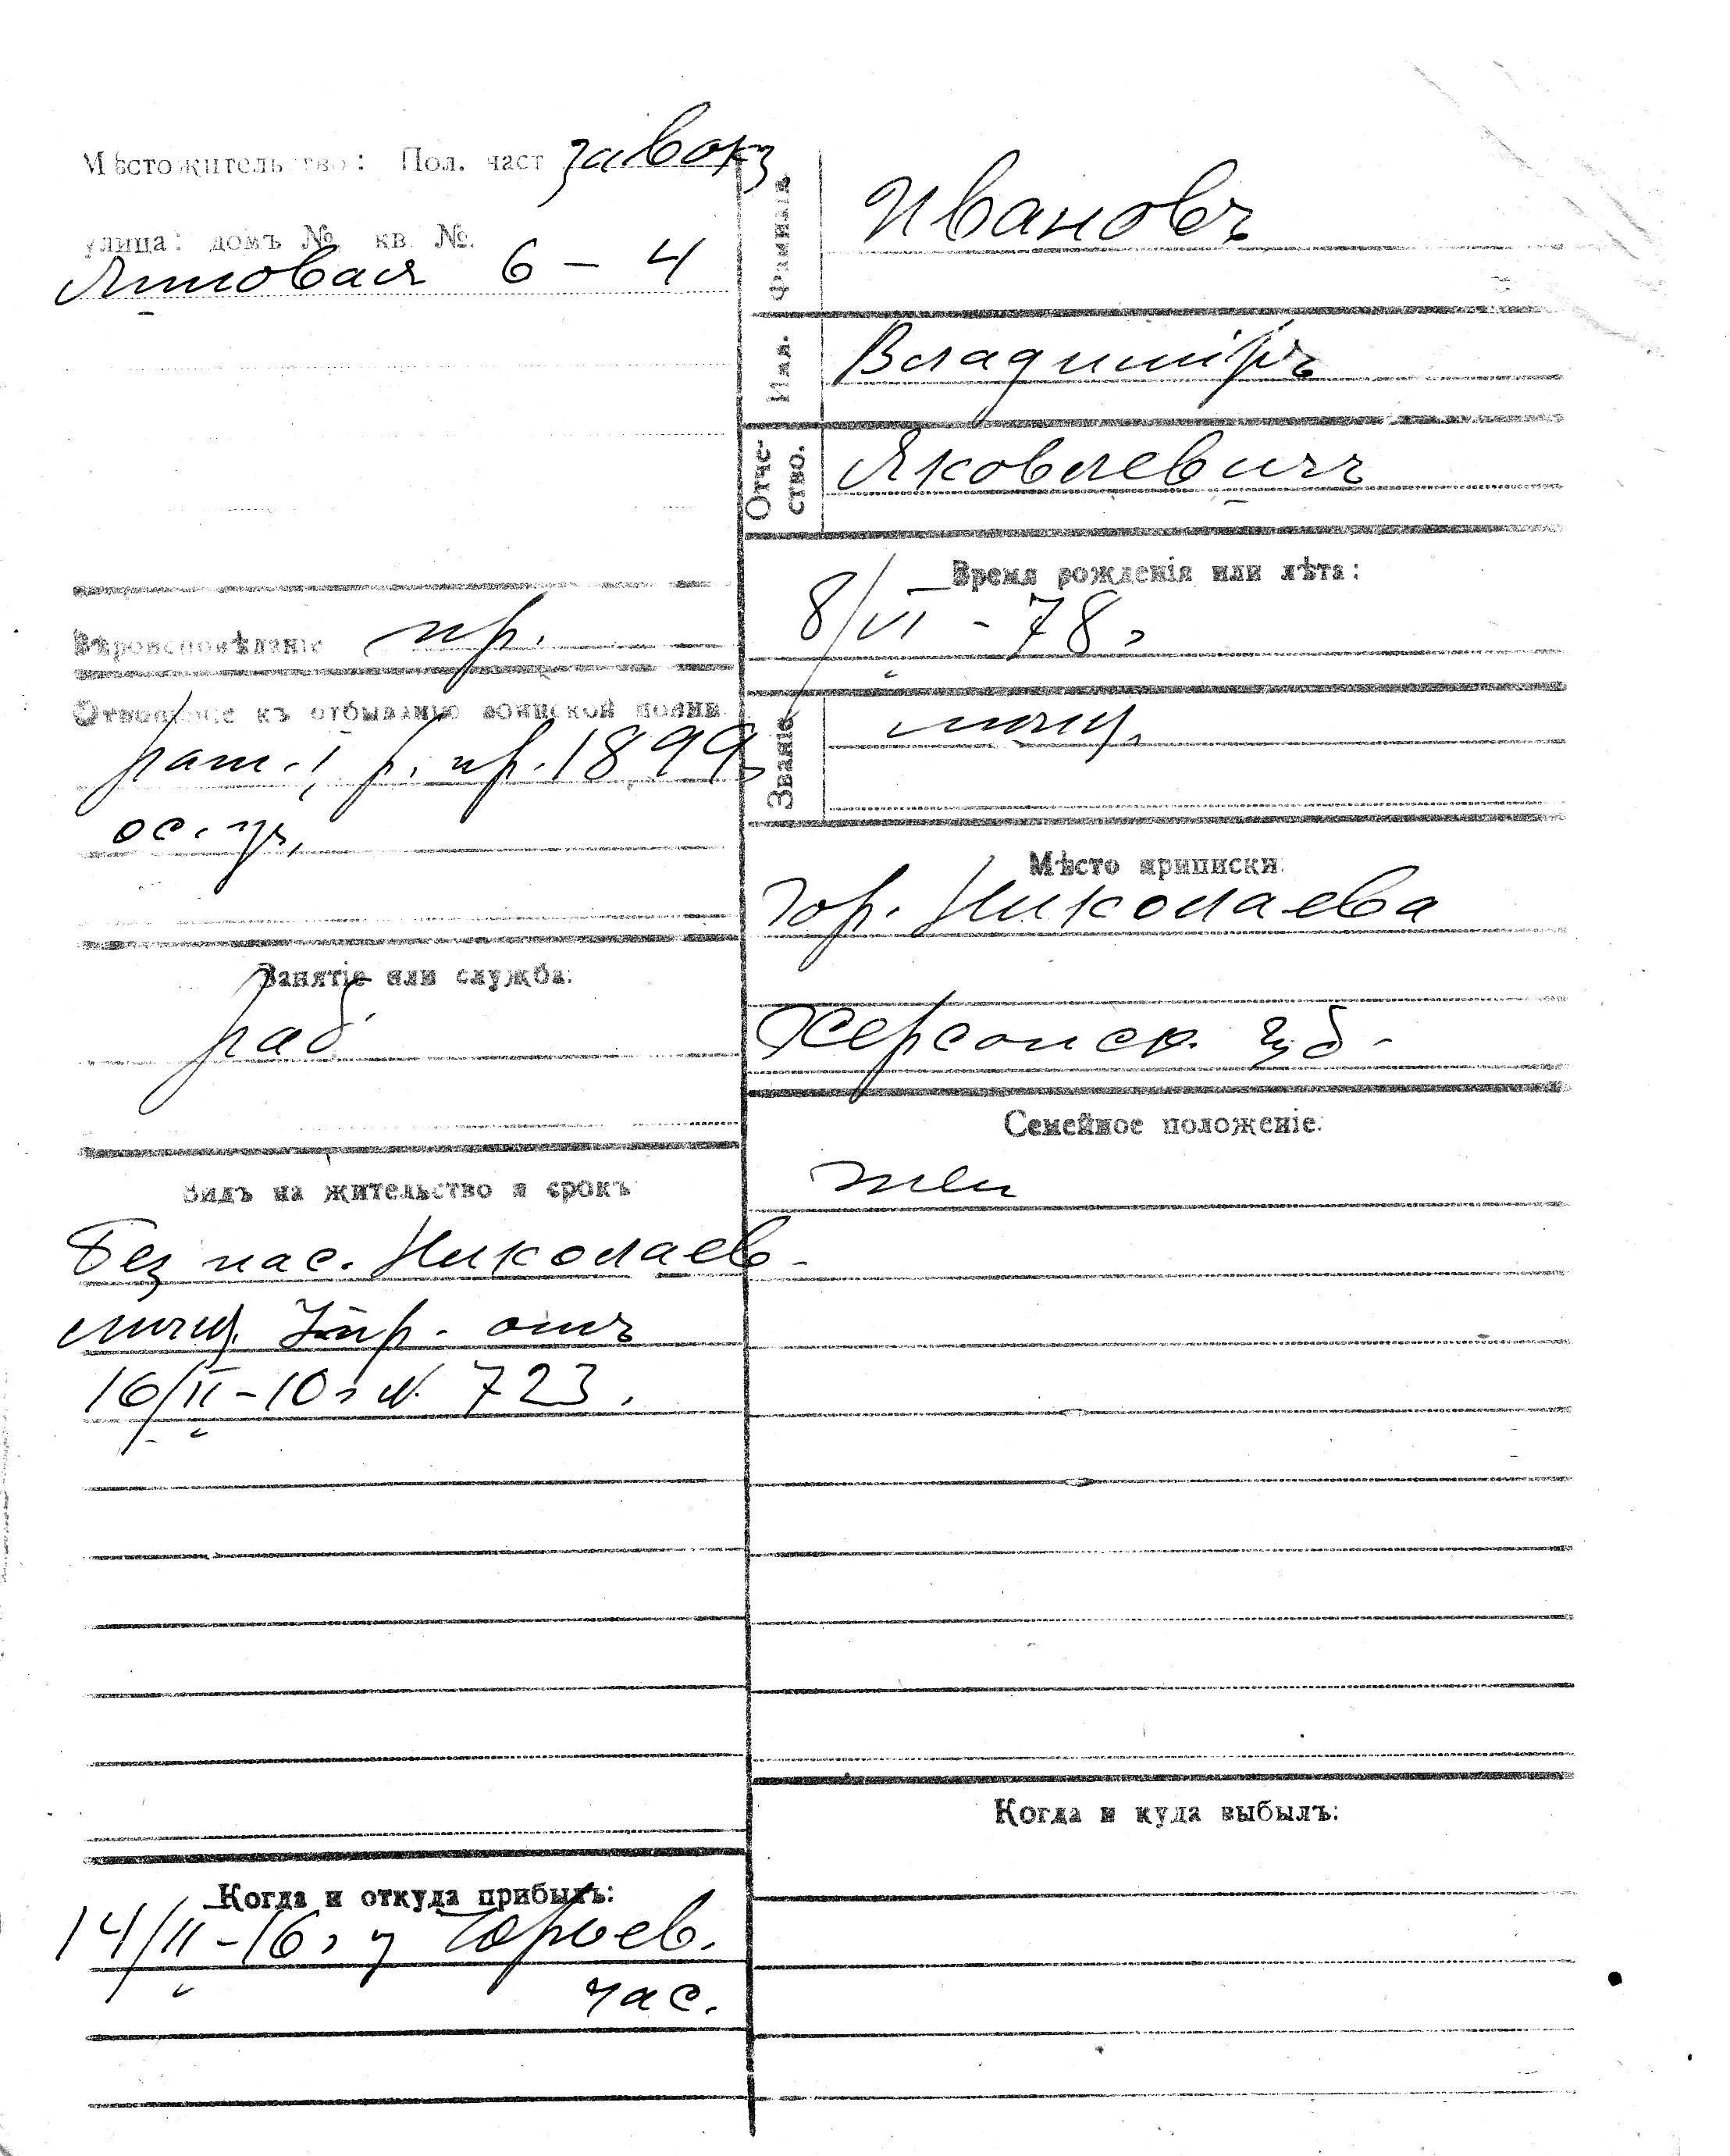 Мѣстожительство: Пол. част завокз
улица: домъ № кв. №.
Липовая 6 – 4
Вѣроисповѣданіе пр.
Отношеніе къ отбыванію воинской повин.
рат. I р. пр. 1899
Занятіе или служба:
раб.
Видъ на жительство и срокъ
Без пас. Николаев-
мѣщ. Упр. отъ
16/II-10 г № 723.
Когда и откуда прибылъ:
14/II-16 г у Юрьев.
час.
Фамилія. Ивановъ
Имя. Владиміръ
Отче-
ство. Яковлевичъ
Время рожденія или лѣта:
8/VI - 78 г
Званіе мѣщ.
Мѣсто приписки.
гор. Николаева
Херсонск. губ.
Семейное положеніе:
жен
Когда и куда выбылъ: